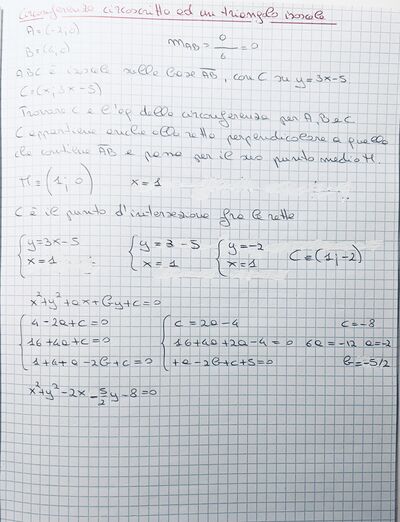 circonferenza circoscritta ad un triangolo isoscele
A=(-2,0)
B=(4,0)
m_AB = 0/6 = 0
ABC è isoscele sulla base AB, con C su y=3x-5
C=(x; 3x-5)
Trovare C e l'eq della circonferenza per A, B e C
C appartiene anche alla retta perpendicolare a quella
che contiene AB e passa per il suo punto medio M.
M=(1; 0) x=1
C è il punto d'intersezione fra le rette
{y=3x-5 {y=3-5 {y=-2
{x=1 {x=1 {x=1 C=(1;-2)
x²+y²+ax+by+c=0
{4-2a+c=0 {c=2a-4 c=-8
{16+4a+c=0 {16+4a+2a-4=0 6a=-12 a=-2
{1+4+a-2b+c=0 {+a-2b+c+5=0 b=-5/2
x²+y²-2x-5/2y-8=0